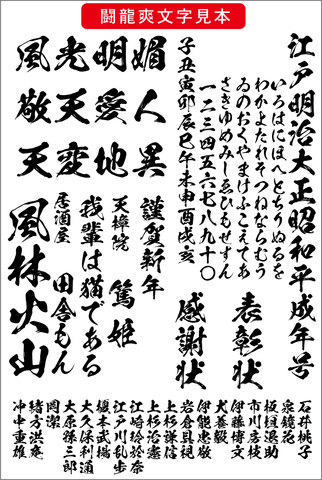 闘龍爽文字見本
江戸明治大正昭和平成年号
いろはにほへとちりぬるを
わかよたれそつねならむう
ゐのおくやまけふこえてあ
さきゆめみしゑひもせすん
一二三四五六七八九十〇
子丑寅卯辰巳午未申酉戌亥
表彰状
感謝状
媚人異
明愛地
光天変
風敬天
謹賀新年
天樟院
篤姫
我輩は猫である
居酒屋
田舎もん
風林火山
石井桃子
泉鏡花
板垣退助
市川房枝
伊藤博文
犬養毅
伊能忠敬
岩倉具視
上杉謙信
上杉治憲
江崎玲於奈
江戸川乱歩
榎本武揚
大久保利通
大原孫三郎
岡潔
緒方洪庵
沖中重雄